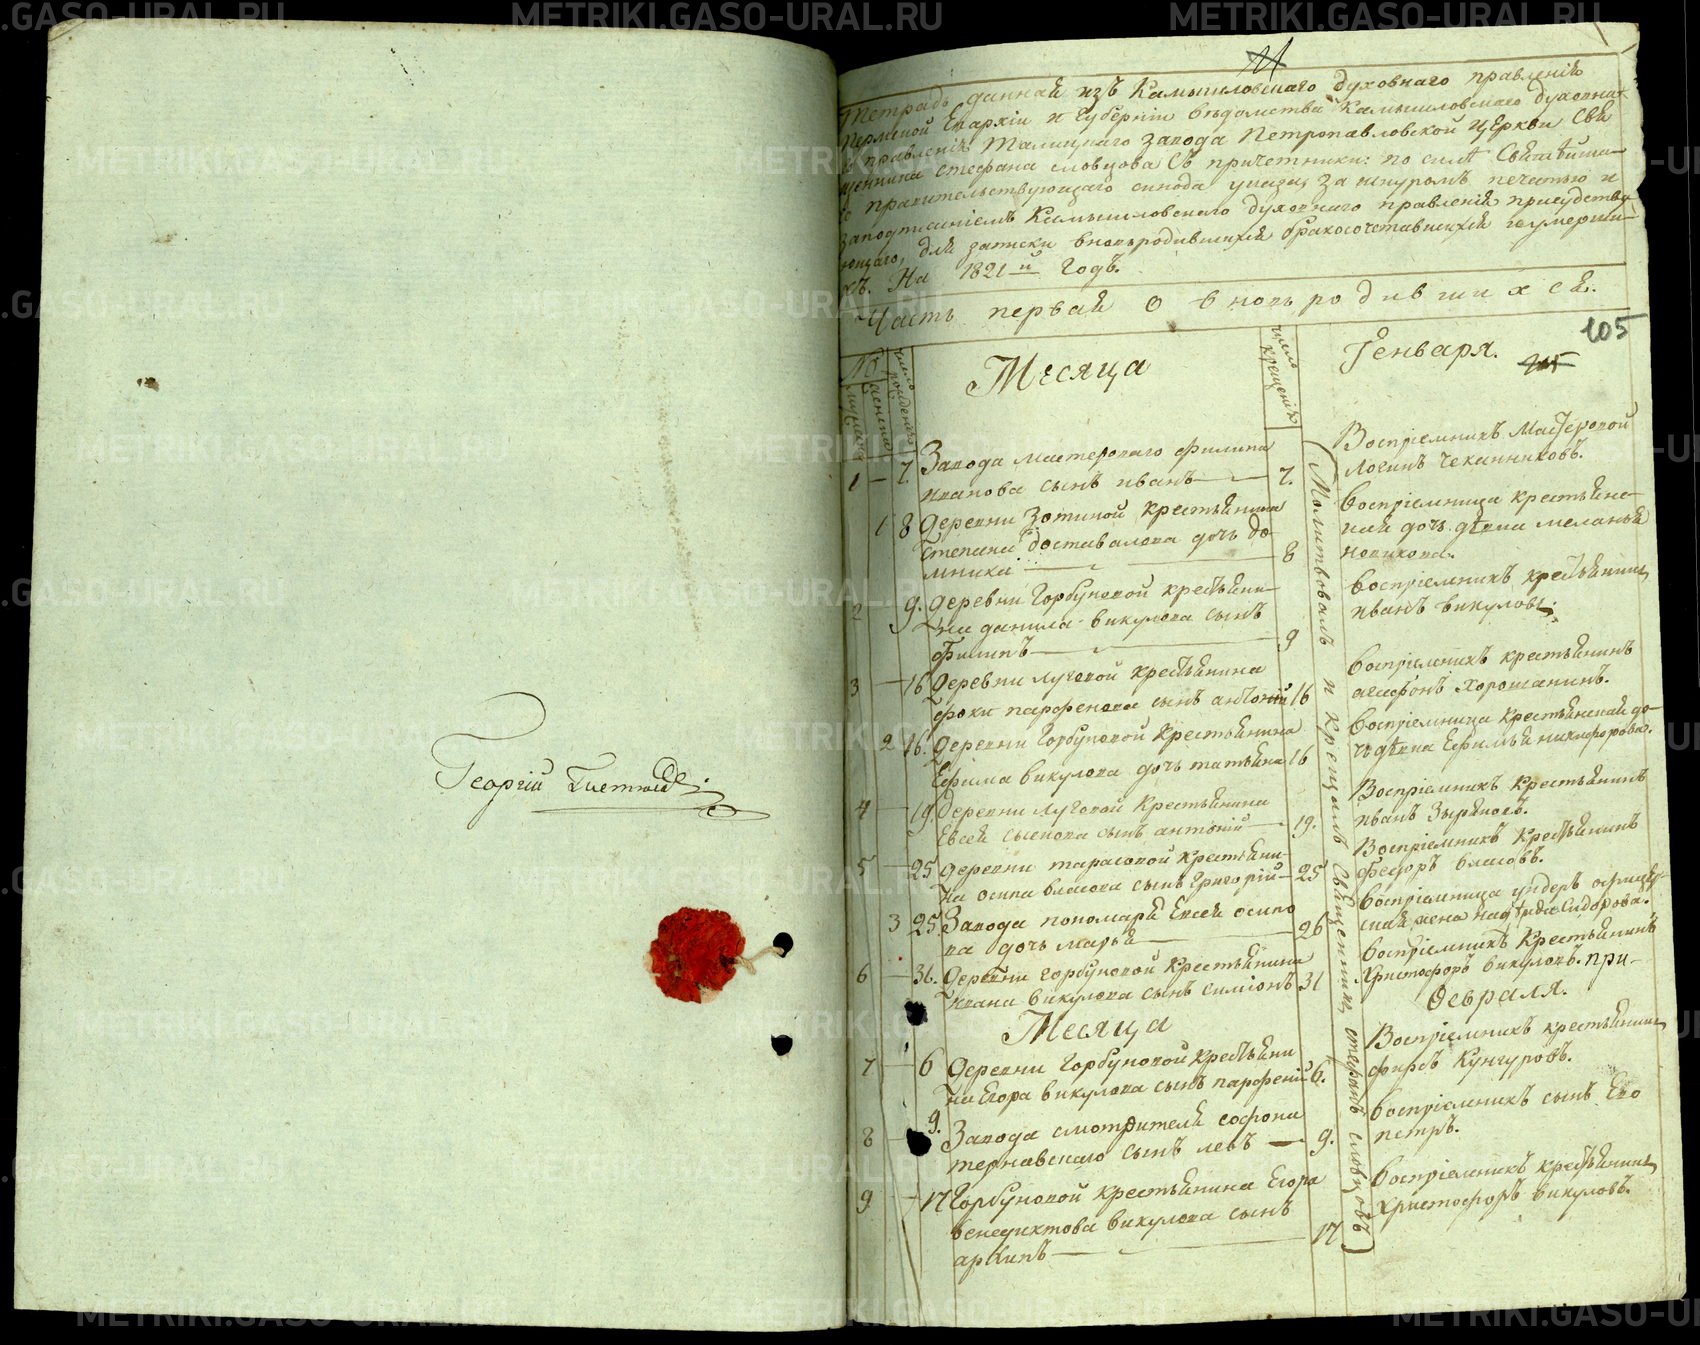 Георгій
Тетрадь данная изъ Камышловскаго духовнаго правленія
Пермской Епархіи и Губерніи вѣдомства Камышловскаго духовна
го правленія Талицкаго завода Петропавловской церкви Свя
щенника Стефана Словцова съ причетники: по силѣ Святѣйша
го правительствующаго синода указа, за шнуромъ печатью и
заподписаніемъ Камышловскаго духовнаго правленія присудству
ющаго, для записки вновьродившихся бракосочетавшихся и умерши
хъ. На 1821й Годъ.
Часть первая О вновь родившихся.
105
№
мужеска
женска
число рожденія
Месяца
число крещенія
Генваря.
1 — 7. Завода мастероваго филипа
иванова сынъ иванъ — 7.
Воспріемникъ Мастеровой
логинъ чеканниковъ.
1 8 Деревни Зотиной крестьянина
степана доставалова дочь до
мника — 8
воспріемница крестьянс
кая дочь дѣвка меланья
новикова.
2 9. Деревни Горбуновой крестьяни
на данила викулова сынъ
филипъ — 9
воспріемникъ крестьянинъ
иванъ викуловъ.
3 — 16 Деревни луговой крестьянина
фоки парфенова сынъ антоній 16
воспріемникъ крестьянинъ
агафонъ Хорошанинъ.
2 16. Деревни Горбуновой крестьянина
Ефима викулова дочь татьяна 16
воспріемница крестьянская до
чь дѣвка Ефимья никифорова.
4 — 19. Деревни луговой крестьянина
Евсея сысоева сынъ антоній — 19.
Воспріемникъ крестьянинъ
иванъ Зыряновъ.
5 — 25 Деревни тарасовой крестьяни
на осипа власова сынъ григорій — 25
Воспріемникъ крестьянинъ
федоръ власовъ.
3 25. Завода пономаря Евсея осипо
ва дочь марья — 26
воспріемница ундеръ офицер
ская жена надежда Сидорова.
6 — 31. Деревни горбуновой крестьянина
ивана викулова сынъ симіонъ 31
воспріемникъ крестьянинъ
Христофоръ викуловъ.
Месяца
Февраля.
7 — 6 Деревни Горбуновой крестьяни
на Егора викулова сынъ парфеній 6.
Воспріемникъ крестьянинъ
фирсъ Кунгуровъ.
8 — 9. Завода смотрителя софона
тернавскаго сынъ левъ — 9.
воспріемникъ сынъ Его
петръ.
9 — 17 Горбуновой крестьянина Егора
венедиктова викулова сынъ
архипъ — 17
воспріемникъ крестьянинъ
Христофоръ викуловъ.
Молитвовалъ и крещалъ Священникъ стефанъ словцовъ
METRIKI.GASO-URAL.RU